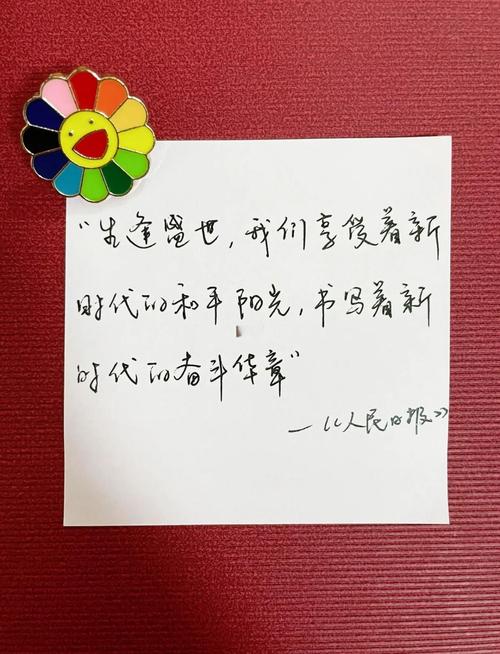 “生逢盛世，我们享受着新
时代的和平阳光，书写着新
时代的奋斗华章”
—《人民日报》